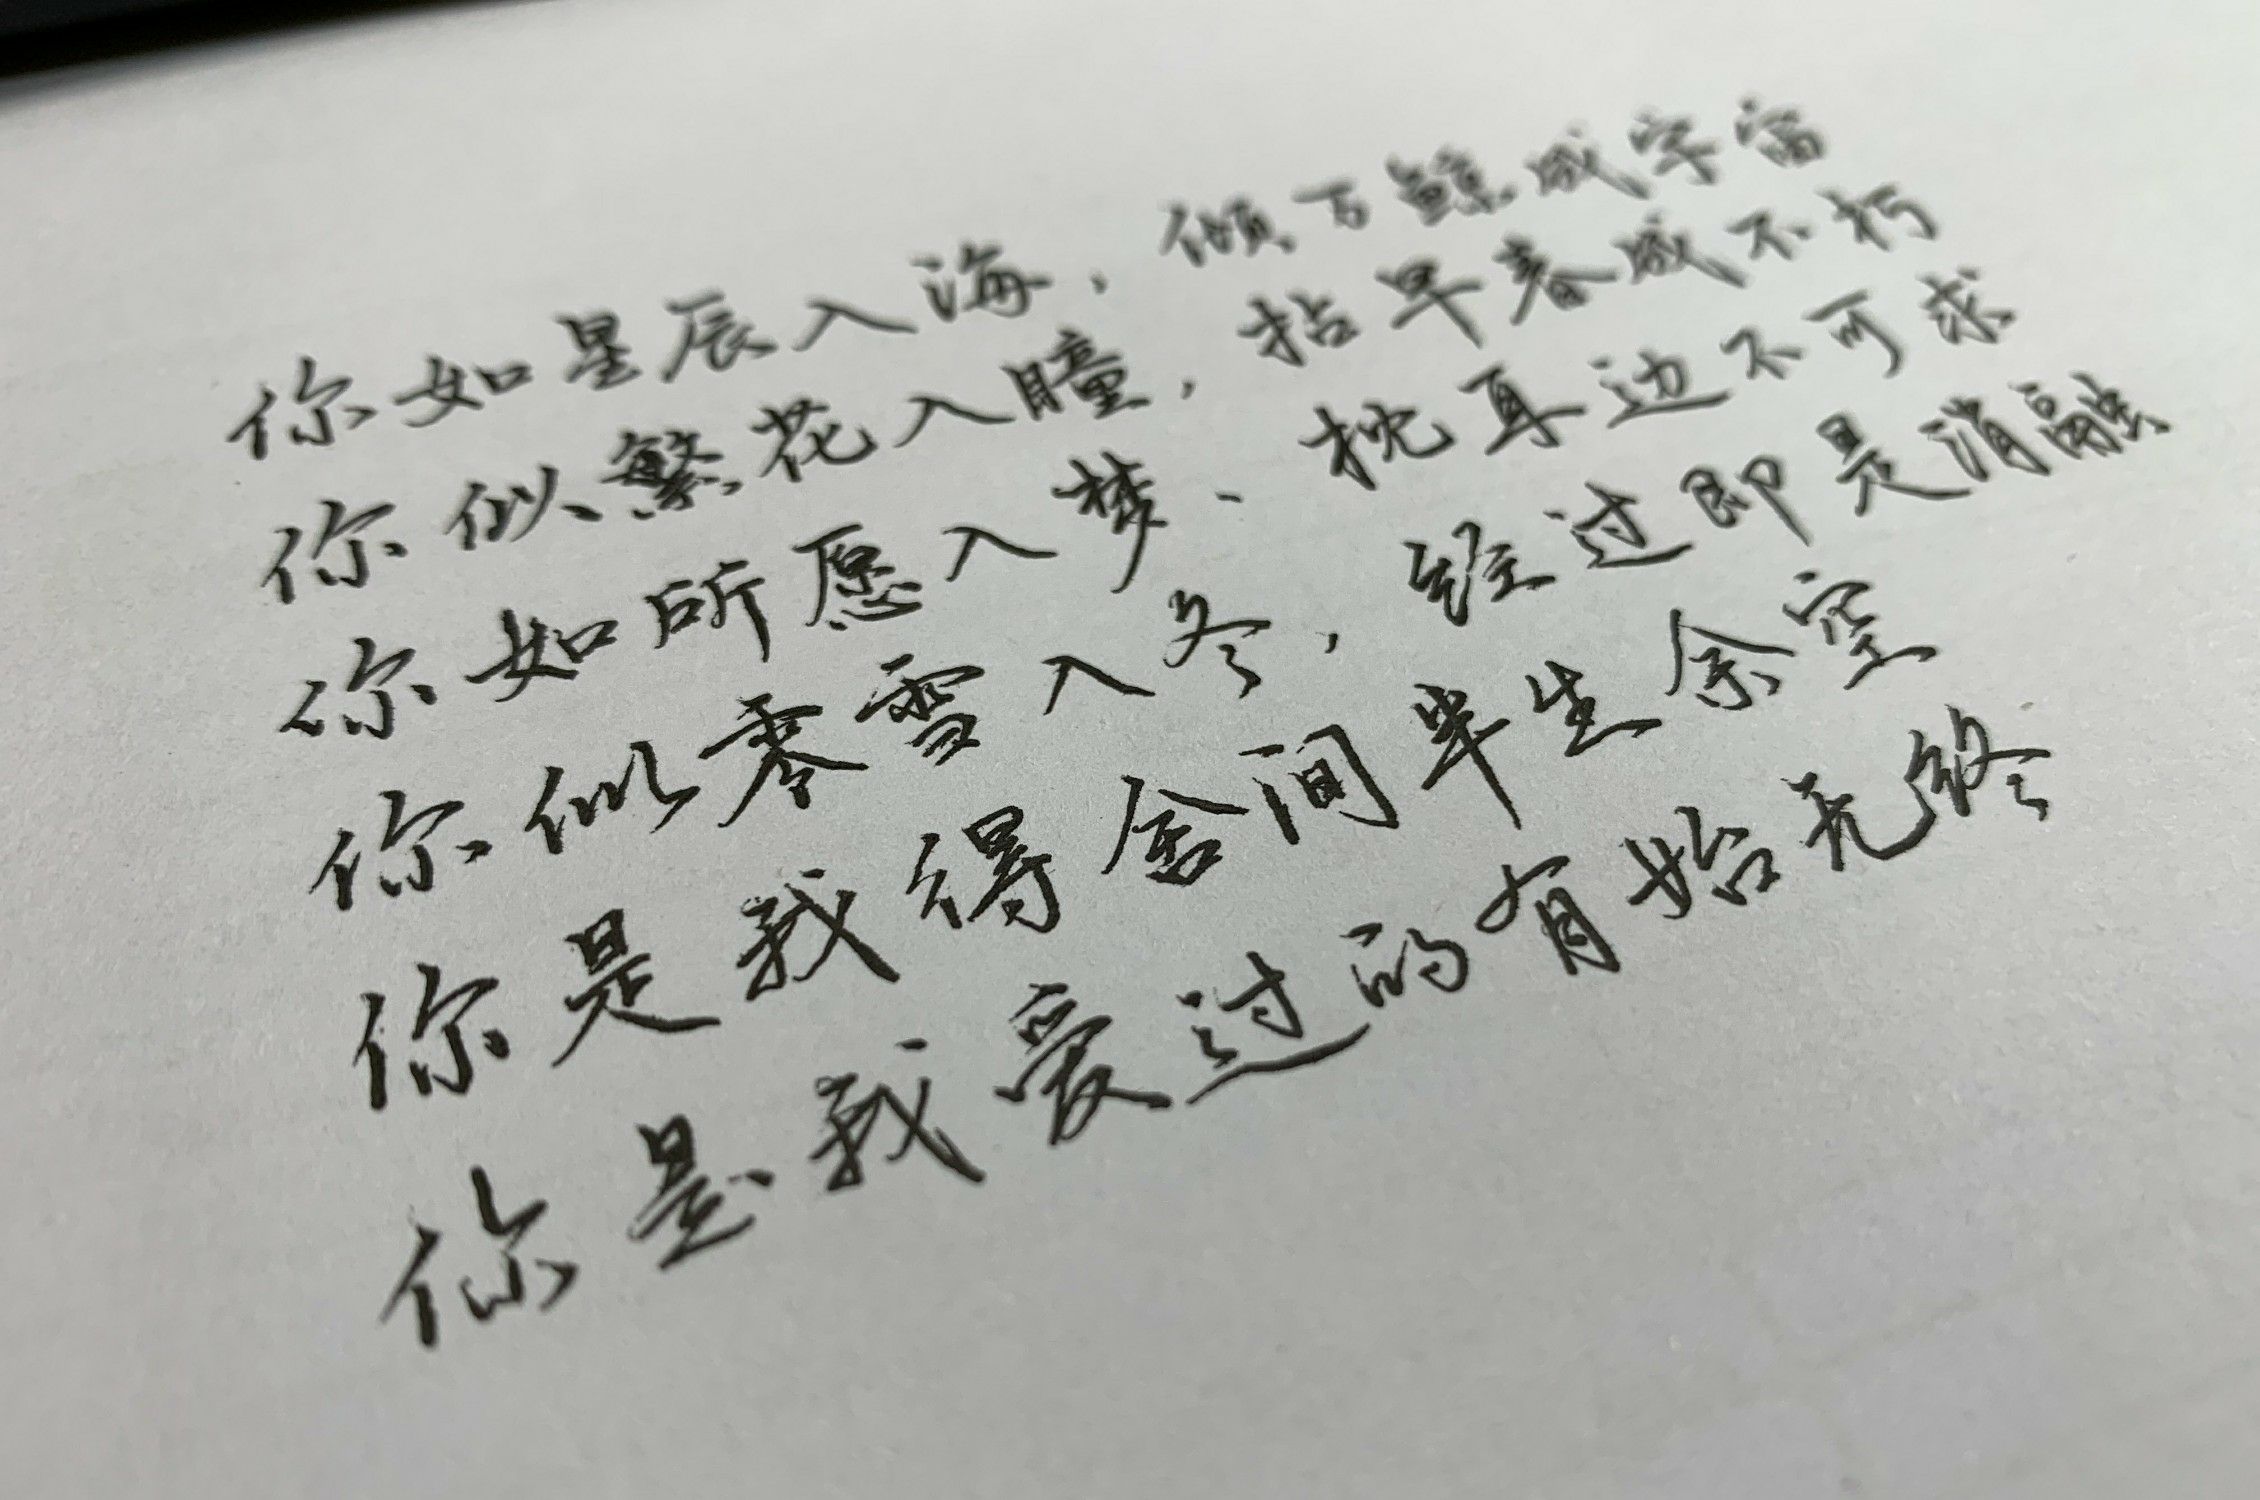 你如星辰入海，倾万鲸成宇宙
你似繁花入瞳，拈早春成不朽
你如所愿入梦、枕耳边不可求
你似零雪入冬，经过即是消融
你是我得舍间半生余空
你是我爱过的有始无终